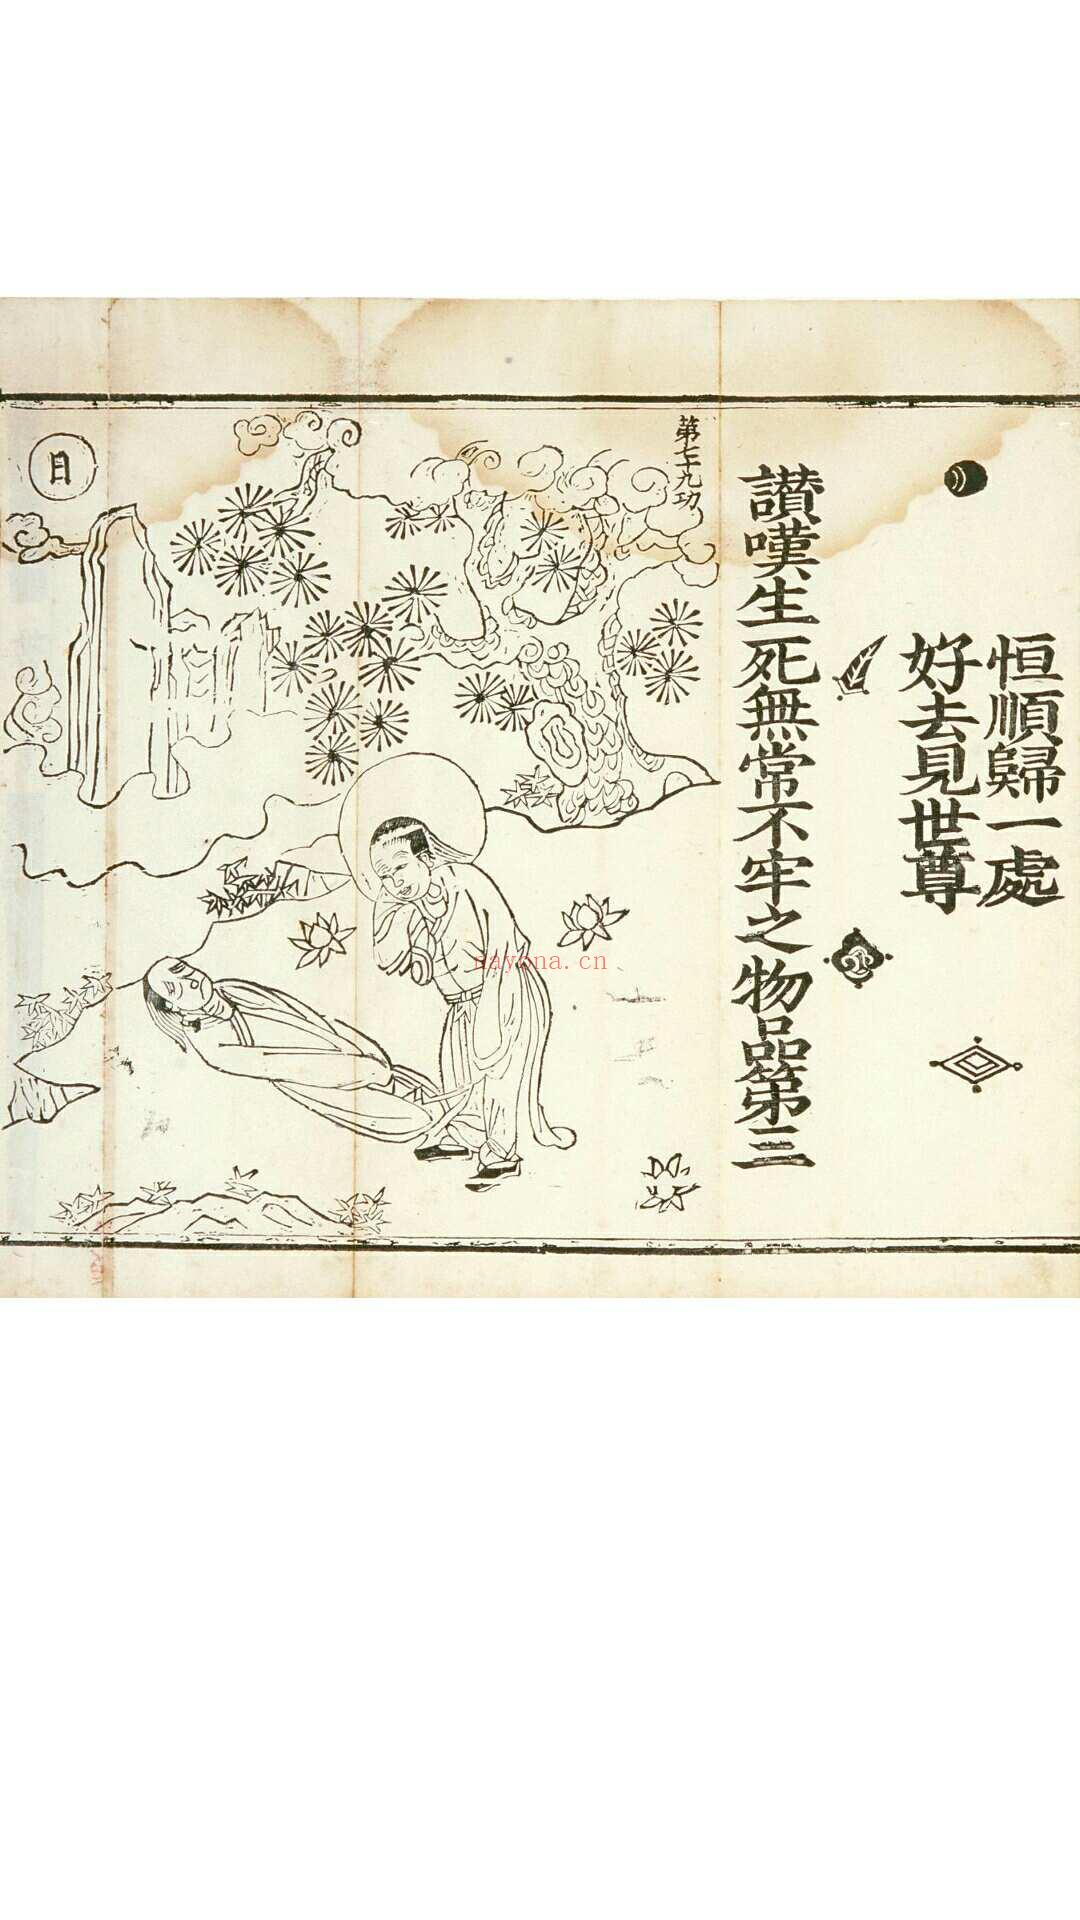 恒順歸一處
好去見世尊
讃嘆生死無常不牢之物品第三
第七十九功
日
nayona.cn